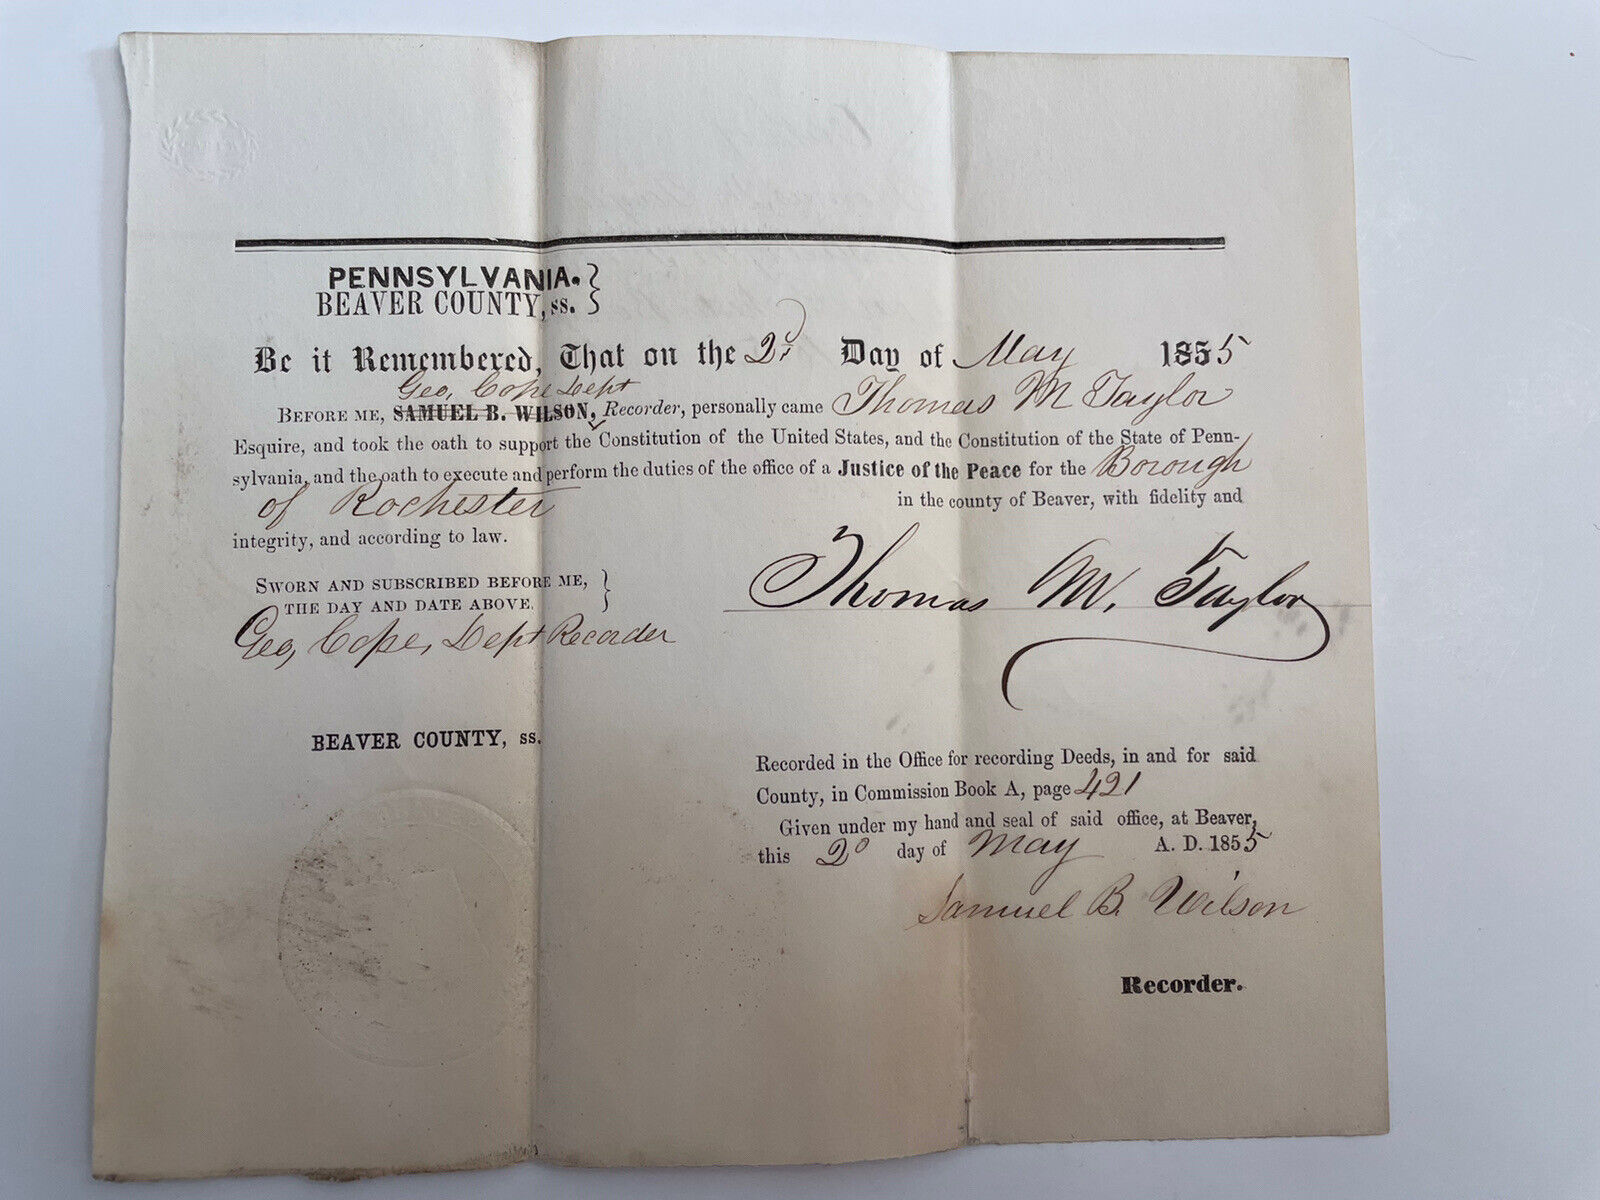 PENNSYLVANIA.
BEAVER COUNTY, ss.
Be it Remembered, That on the 2d Day of May 1855
Geo, Cope Dept
BEFORE ME, SAMUEL B. WILSON, Recorder, personally came Thomas M Taylor
Esquire, and took the oath to support the Constitution of the United States, and the Constitution of the State of Penn-
sylvania, and the oath to execute and perform the duties of the office of a Justice of the Peace for the Borough
of Rochester in the county of Beaver, with fidelity and
integrity, and according to law.
SWORN AND SUBSCRIBED BEFORE ME,
THE DAY AND DATE ABOVE,
Thomas M. Taylor
Geo, Cope, Dept Recorder
BEAVER COUNTY, ss.
Recorded in the Office for recording Deeds, in and for said
County, in Commission Book A, page 421
Given under my hand and seal of said office, at Beaver,
this 2d day of May A. D. 1855
Samuel B. Wilson
Recorder.